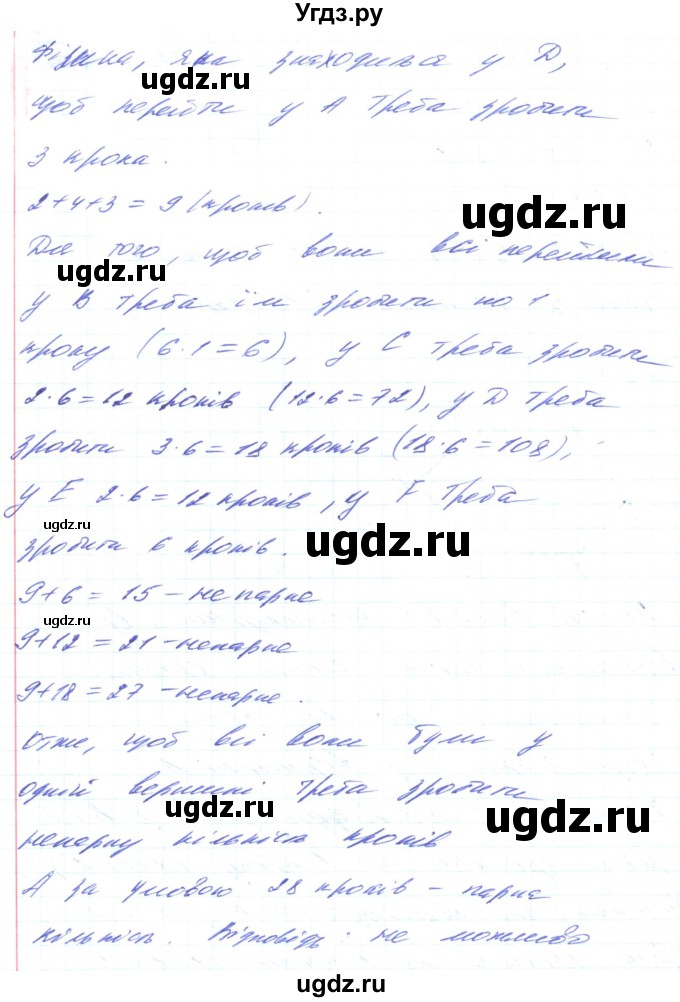 Угдз.ру
фішка, яка знаходиться у D,
щоб перейти у А треба зробити
3 крока.
2+4+3 = 9 (кроків).
Для того, щоб вони всі перейшли
у В треба їм зробити по 1
кроку (6·1=6), у С треба зробити
2·6=12 кроків (12·6=72), у D треба
зробити 3·6=18 кроків (18·6=108),
у Е 2·6=12 кроків, у F треба
зробити 6 кроків.
9+6 = 15 – непарне
9+12 = 21 – непарне
9+18 = 27 – непарне.
Отже, щоб всі вони були у
одній вершині треба зробити
непарну кількість кроків
А за умовою 28 кроків – парна
кількість. Відповідь: не можливо
ugdz.ru
ugdz.ru
ugdz.ru
ugdz.ru
ugdz.ru
ugdz.ru
ugdz.ru
ugdz.ru
ugdz.ru
ugdz.ru